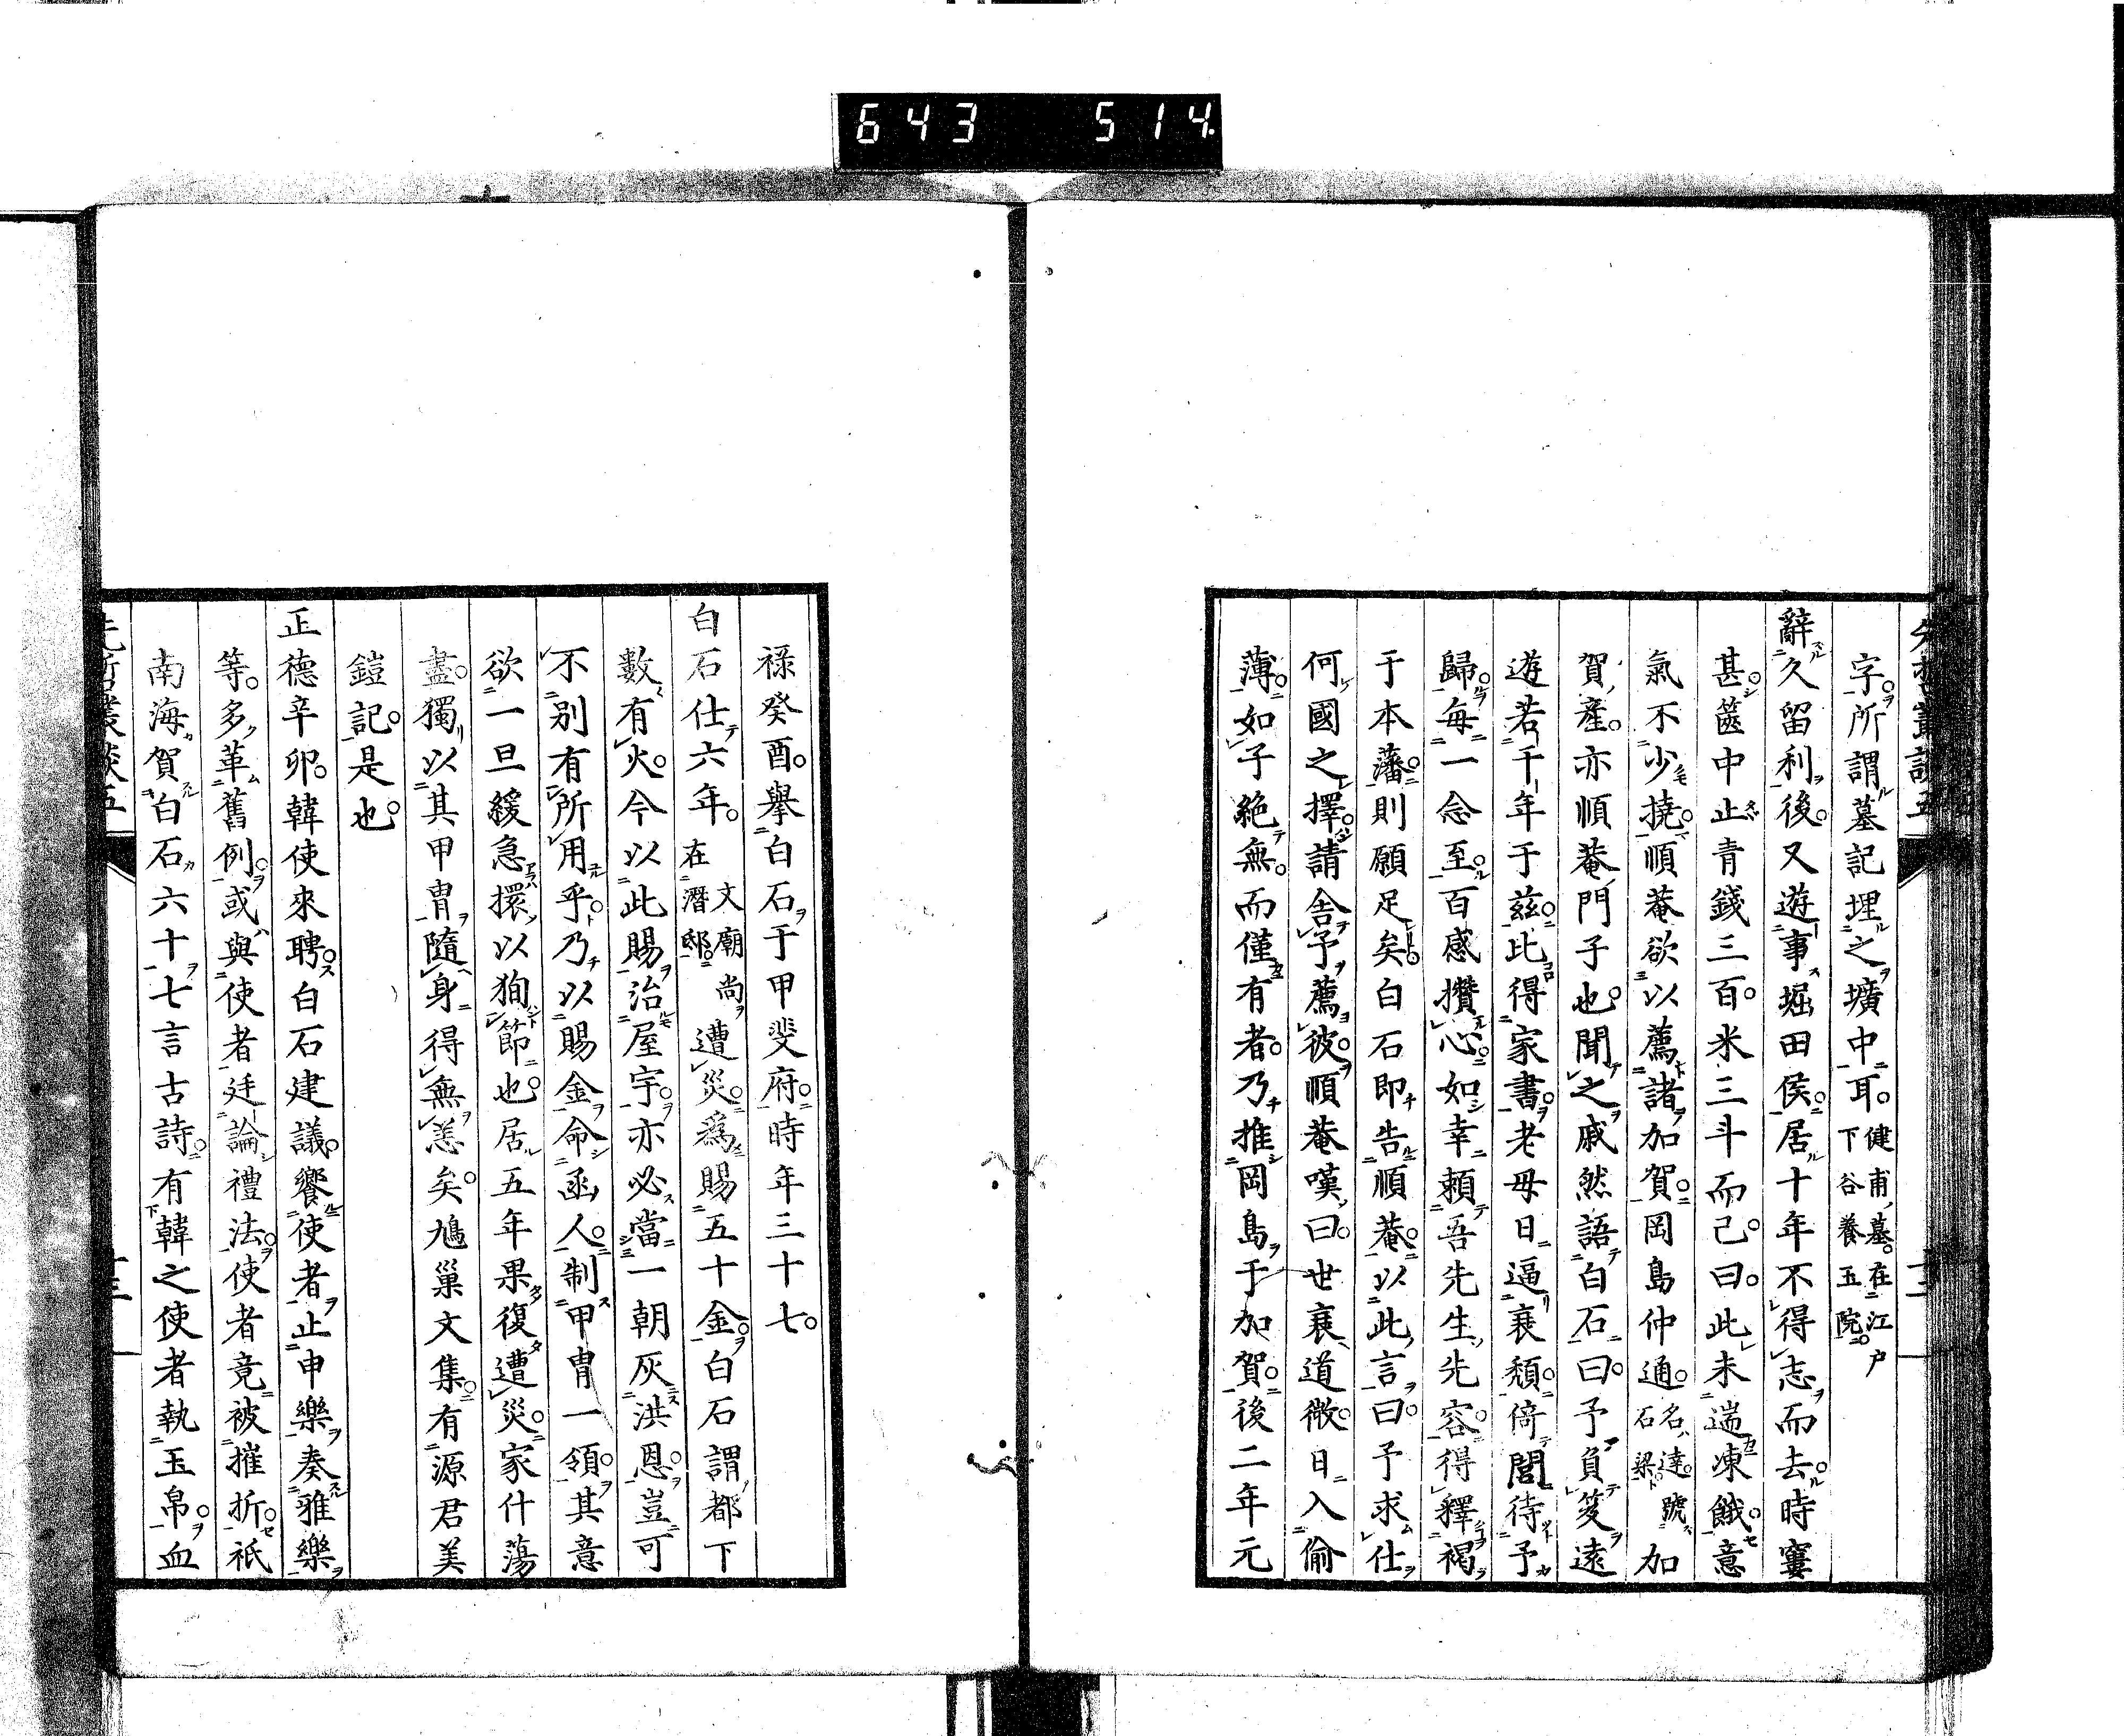 643 514
字所謂墓記埋之壙中耳健甫墓在江戸下谷養玉院
辭久留利後又遊事堀田侯居十年不得志而去時窶
甚篋中止青錢三百米三斗而已曰此未遄凍餓意
氣不少撓順菴欲以薦諸加賀岡島仲通名達號石梁加
賀產亦順菴門子也聞之戚然語白石曰予負笈遠
遊若干年于兹比得家書老母日逼衰頽倚閭待予
歸每一念至百感攢心如幸賴吾先生先容得釋褐
于本藩則願足矣白石即告順菴以此言曰予求仕
何國之擇請舍予薦彼順菴嘆曰世衰道微日入偷
薄如子絕無而僅有者乃推岡島于加賀後二年元
祿癸酉擧白石于甲斐府時年三十七
白石仕六年文廟尚在潛邸遭災爲賜五十金白石謂都下
數有火今以此賜治屋宇亦必當一朝灰洪恩豈可
不別有所用乎乃以賜金命函人制甲冑一領其意
欲一旦緩急擐以狥節也居五年果復遭災家什蕩
盡獨以其甲冑隨身得無恙矣鳩巢文集有源君美
鎧記是也
正德辛卯韓使來聘白石建議饗使者止申樂奏雅樂
等多革舊例或與使者廷論禮法使者竟被摧折祇
南海賀白石六十七言古詩有韓之使者執玉帛血